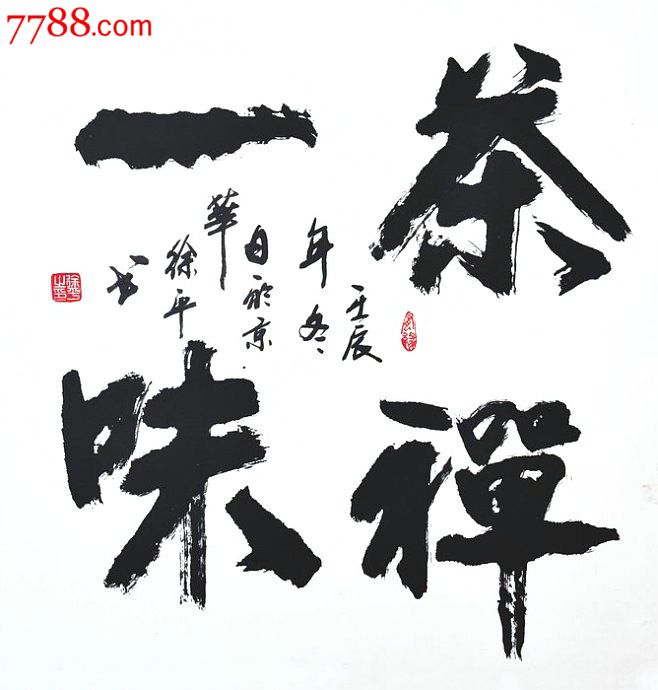 7788.com
茶禪
一味
壬辰
年冬
日於京
華
徐平
书